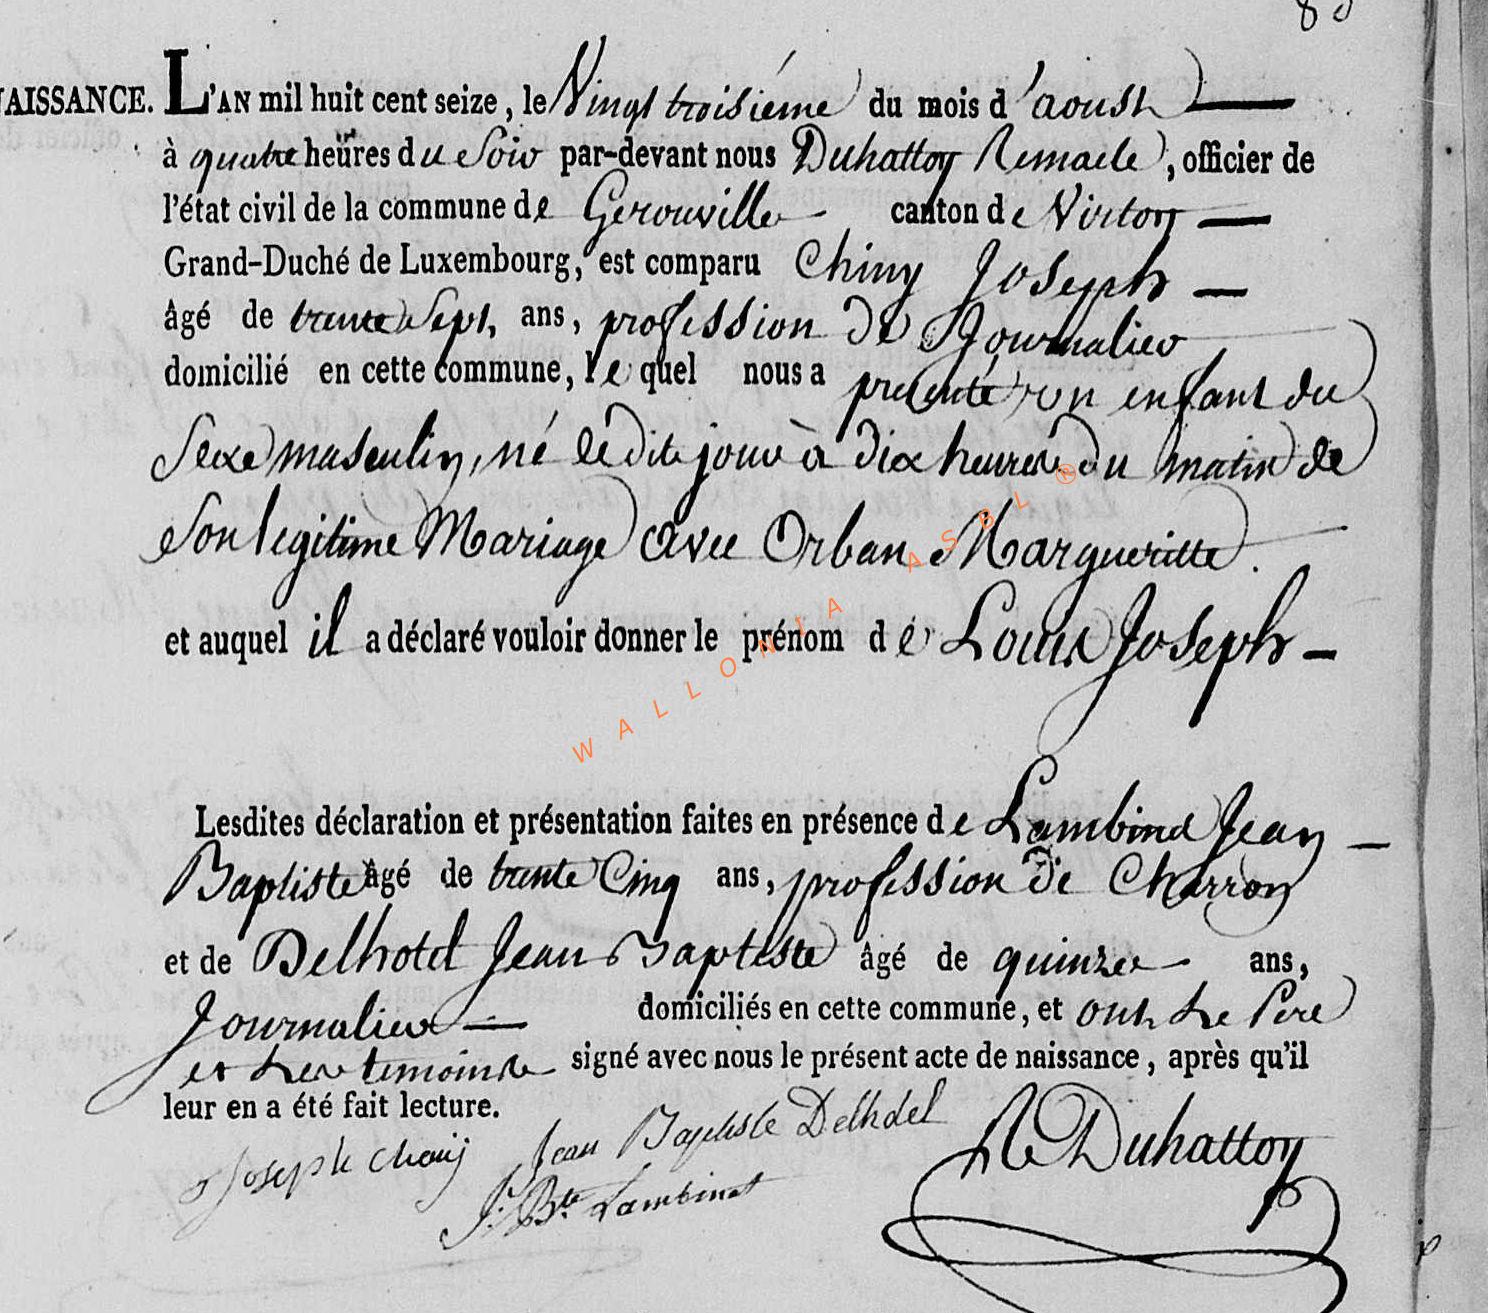 NAISSANCE. L'AN mil huit cent seize, le Vingt troisiéme du mois d'aoust
à quatre heures du Soir par-devant nous Duhattoy Remacle, officier de
l'état civil de la commune de Gerouville canton de Virton
Grand-Duché de Luxembourg, est comparu Chiny Joseph
âgé de trente Sept, ans, profession de Journalier
domicilié en cette commune, lequel nous a presenté un enfant du
Sexe masculin, né le dit jour à dix heures du matin de
Son legitime Mariage avec Orban Margueritte.
et auquel il a déclaré vouloir donner le prénom de Louis Joseph
WALLONIA ASBL ®
Lesdites déclaration et présentation faites en présence de Lambinet Jean
Baptiste âgé de trente Cinq ans, profession de Charron
et de Delhotel Jean Baptiste âgé de quinze ans,
Journalier domiciliés en cette commune, et ont Le Pere
et Les temoins signé avec nous le présent acte de naissance, après qu'il
leur en a été fait lecture.
Joseph Jean Baptiste Delhotel R Duhattoy
J. Bte Lambinet